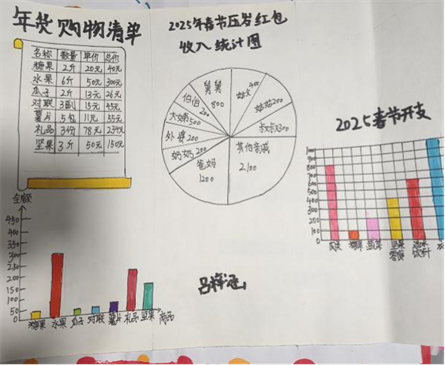 年货购物清单
名称 数量 单价 总价
糖果 2斤 20元 40元
水果 6斤 50元 300元
瓜子 2斤 13元 26元
对联 3副 15元 45元
薯片 5包 11元 55元
礼品 3份 78元 234元
坚果 3斤 50元 150元
金额
450
400
350
300
250
200
150
100
50
0
糖果 水果 瓜子 对联 薯片 礼品 坚果 商品
2025年春节压岁红包
收入统计图
舅舅
800
伯伯
200
大姨500
外婆200
奶奶200
爸妈
1200
姑姑200
叔叔300
其他亲戚
2100
吕梓涵
2025春节开支
1000
900
800
700
600
500
400
300
200
100
0